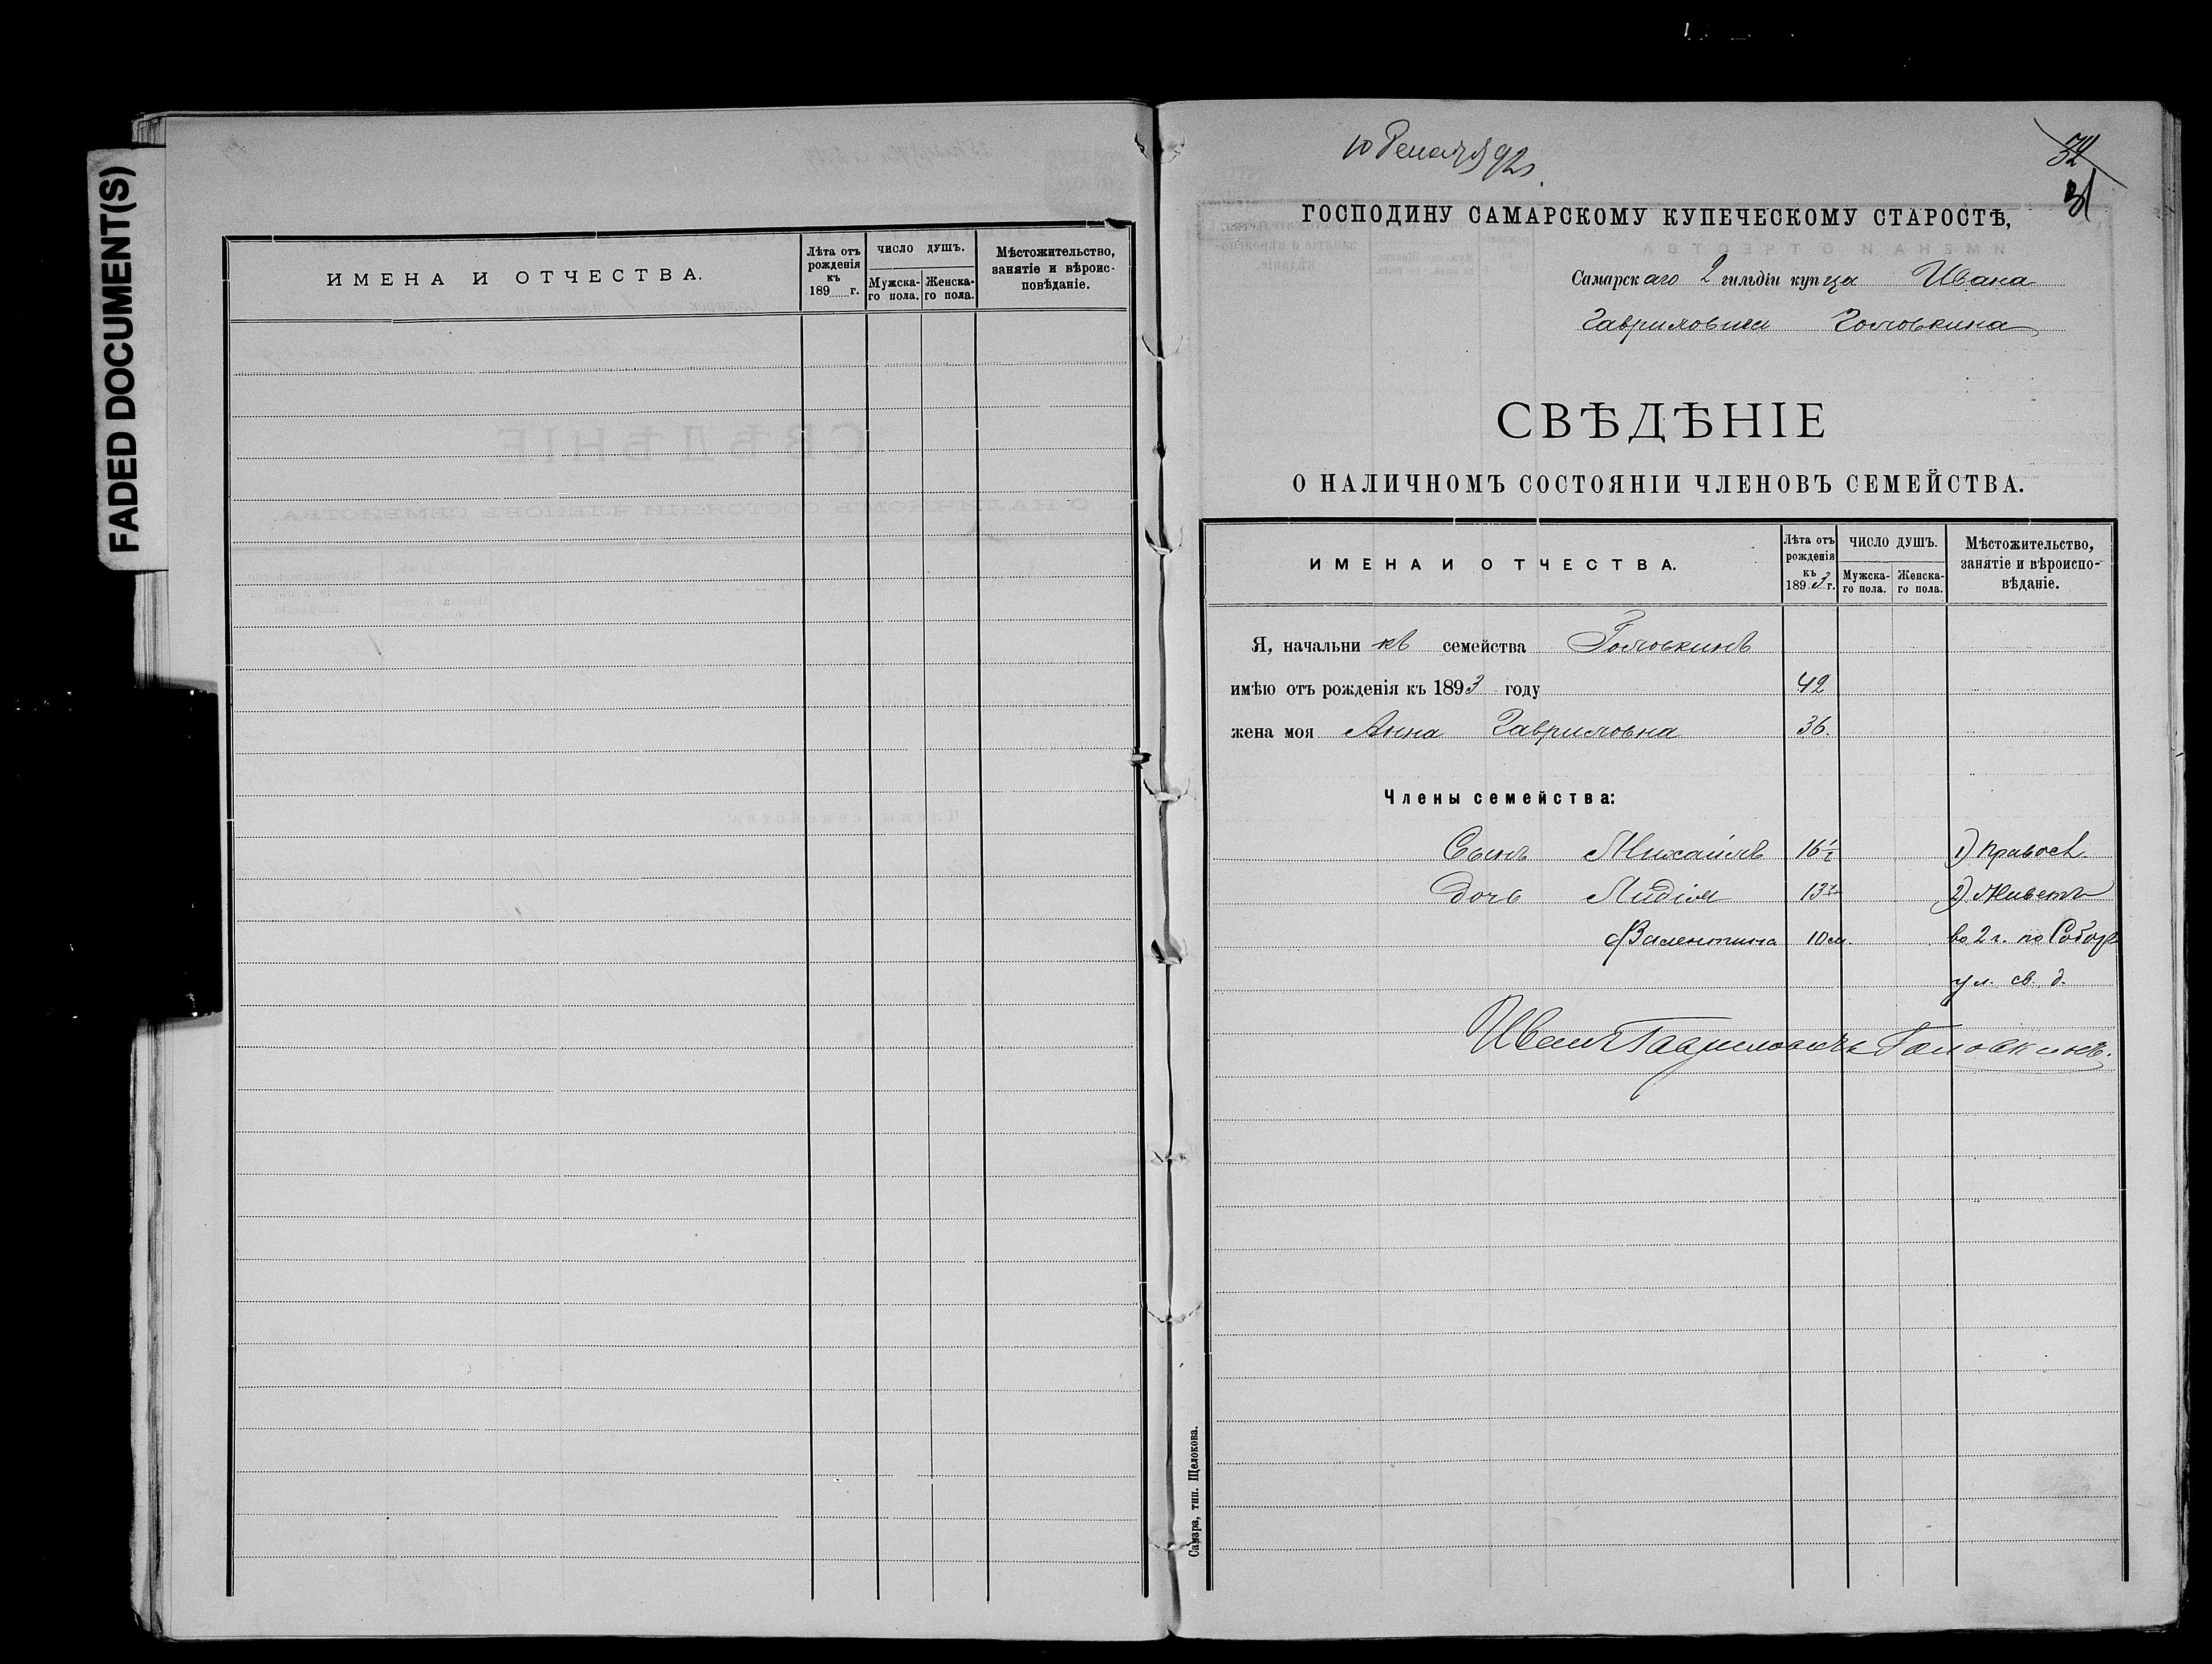 FADED DOCUMENT(S)
ИМЕНА И ОТЧЕСТВА.
Лѣта отъ рожденія къ 189 г.
ЧИСЛО ДУШЪ.
Мужска-го пола.
Женска-го пола.
Мѣстожительство, занятіе и вѣроис-повѣданіе.
10 Декабря 92 г.
32
31
ГОСПОДИНУ САМАРСКОМУ КУПЕЧЕСКОМУ СТАРОСТѢ,
Самарскаго 2 гильдіи купца Ивана
Гавриловича Головкина
СВѢДѢНІЕ
О НАЛИЧНОМЪ СОСТОЯНІИ ЧЛЕНОВЪ СЕМЕЙСТВА.
ИМЕНА И ОТЧЕСТВА.
Лѣта отъ рожденія къ 1893 г.
ЧИСЛО ДУШЪ.
Мужска-го пола.
Женска-го пола.
Мѣстожительство, занятіе и вѣроиспо-вѣданіе.
Я, начальникъ семейства Головкинъ
имѣю отъ рожденія къ 1893 году 42
жена моя Анна Гавриловна 36.
Члены семейства:
Сынъ Михаилъ 16 1/2 1) Правосл.
Дочь Лидія 13 2) Живетъ
Валентина 10 м. во 2 г. по Собор
ул. св. д.
Иванъ Гавриловичъ Головкинъ.
Самара, тип. Щелокова.